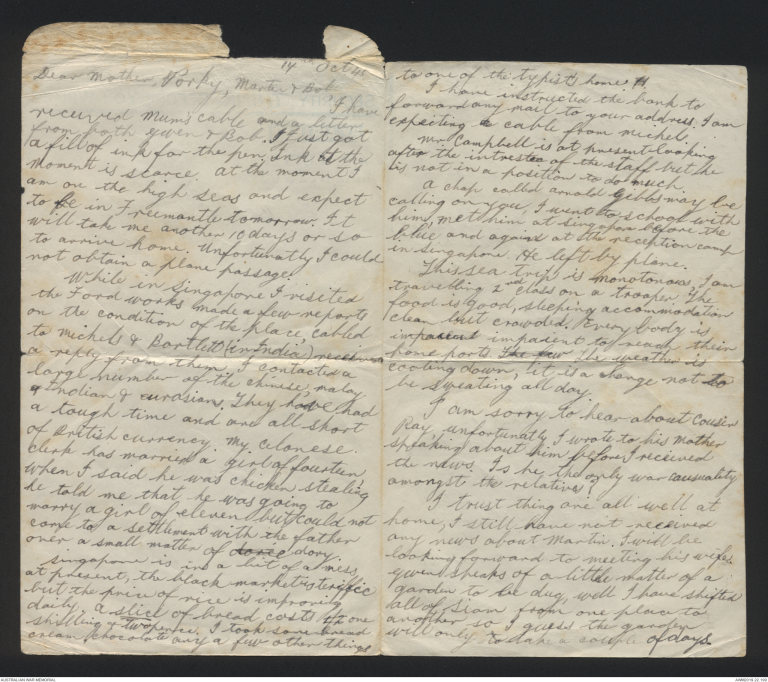 14th Oct 45
Dear Mother, Porky, Martin & Bob,
I have
received Mum's cable and a letter
from both Gwen & Bob. I just got
a fill of ink for the pen. Ink at the
moment is scarce. At the moment I
am on the high seas and expect
to be in Freemantle tomorrow. It
will take me another 10 days or so
to arrive home. Unfortunately I could
not obtain a plane passage.
While in Singapore I visited
the Ford works made a few reports
on the condition of the place cabled
to Michels & Bartlett (in India) received
a reply from them. I contacted a
large number of the chinese, malay
Indian & eurasian. They have had
a tough time and are all short
of British currency. My celonese
clerk has married a girl of fourteen
when I said he was chicken stealing
he told me that he was going to
marry a girl of eleven but could not
come to a settlement with the father
over a small matter of dory.
Singapore is in a bit of a mess
at present, the black market is terific
but the price of rice is improving
daily, a slice of bread costs one
shilling & twopence. I took some bread
cream, chocolate any a few other things
to one of the typist's home.
I have instructed the bank to
forward any mail to your address. I am
expecting a cable from michel.
Mr. Campbell is at present looking
after the intrestes of the staff but he
is not in a position to do much.
A chap called arnold Gibbs may be
calling on you, I went to school with
him, met him at singapore before the
blue and again at the reception camp
in singapore. He left by plane.
This sea trip is monotonous, I am
travelling 2nd class on a trooper. The
food is good, sleeping accommodation
clean but crowded. Every body is
impatient impatient to reach their
home ports. The few The weather is
cooling down, it is a change not to
be sweating all day.
I am sorry to hear about Cousin
Ray, unfortunatly I wrote to his Mother
speaking about him before I recieved
the news. Is he the only war causuality
amongst the relatives?
I trust thing are all well at
home, I still have not received
any news about Martin. I will be
looking forward to meeting his wife.
Gwen speaks of a little matter of a
garden to be dug, well I have shifted
all of Siam from one place to
another so I guess the garden
will only to take a couple of days.
AUSTRALIAN WAR MEMORIAL